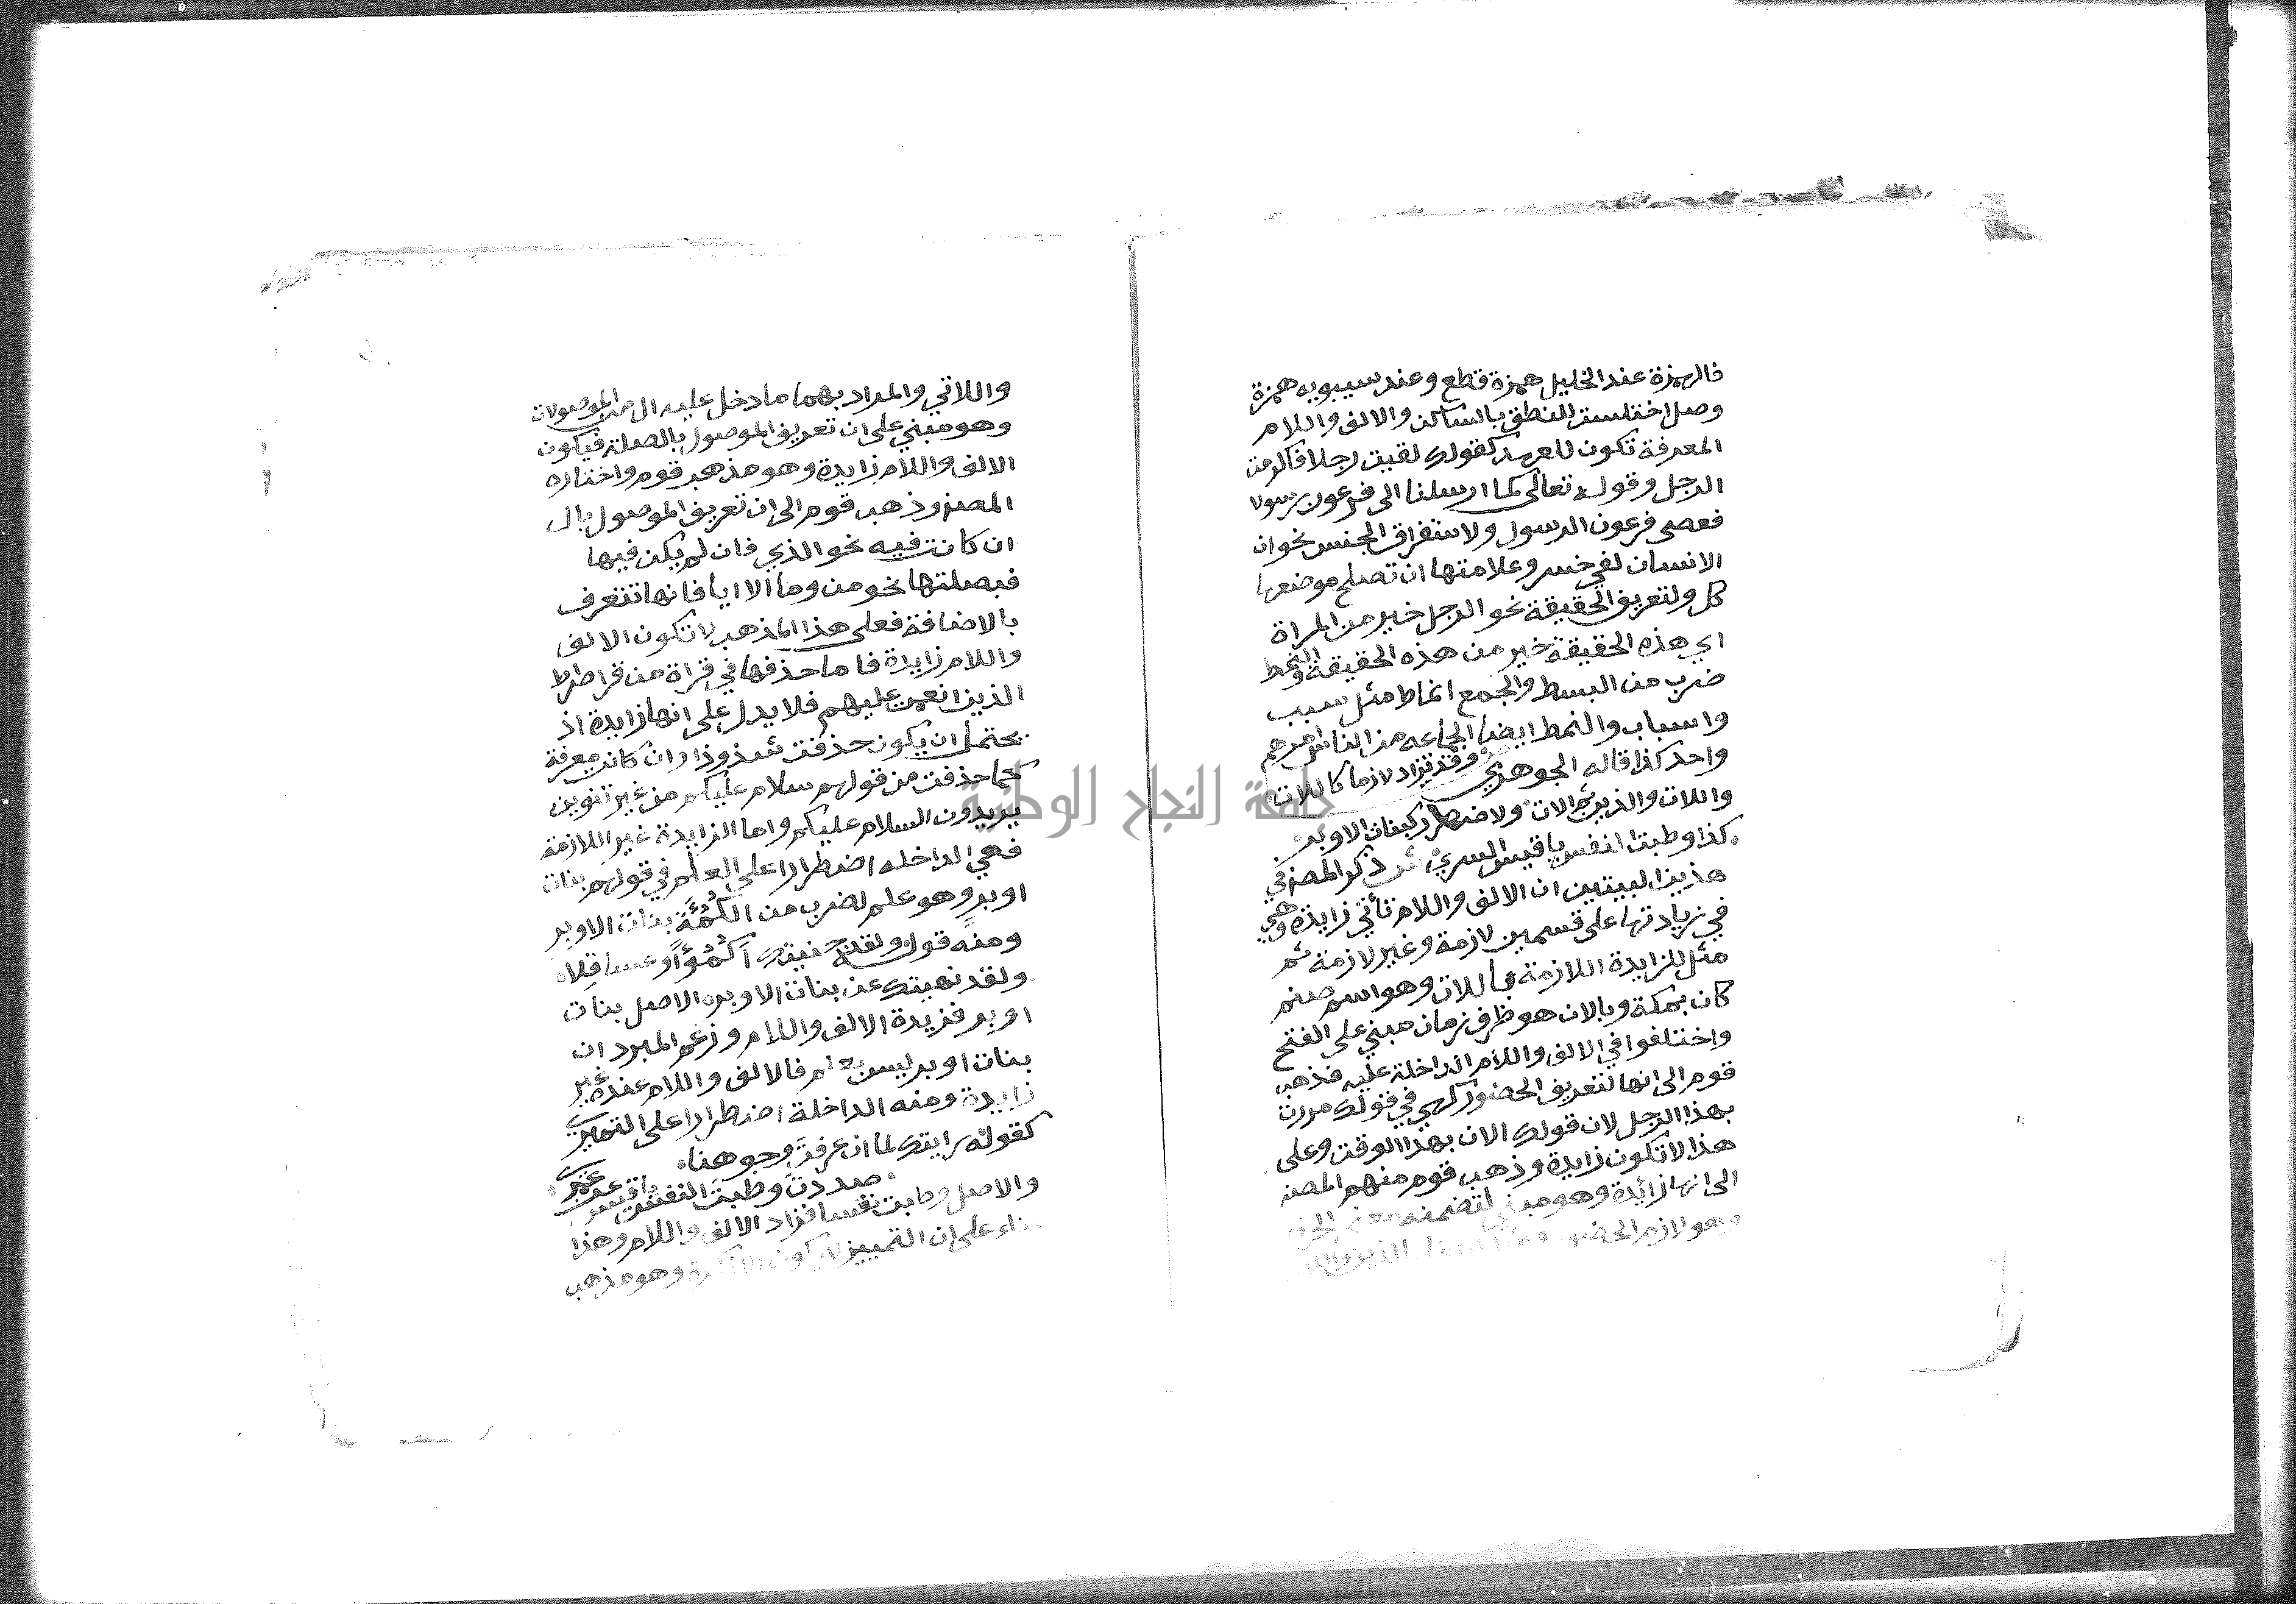 فالهمزة عند الخليل همزة قطع وعند سيبويه همزة
وصل اختلست للنطق بالساكن والالف واللام
المعرفة تكون للعهد كقولك لقيت رجلا فاكرمت
الرجل وقوله تعالى كما ارسلنا الى فرعون رسولا
فعصى فرعون الرسول ولاستغراق الجنس نحو ان
الانسان لفي خسر وعلامتها ان تصلح موضعها
كل ولتعريف الحقيقة نحو الرجل خير من المراة
اي هذه الحقيقة خير من هذه الحقيقة والنمط
ضرب من البسط والجمع انماط مثل سبب
واسباب والنمط ايضا الجماعه من الناس امرهم
واحد كذا قاله الجوهري وقد تزاد لازما كاللات
واللات والذين ثم الات ولاضطرار كبنات الاوبر
كذا وطبت النفس يا قيس السري ذكر المصنف في
هذين البيتين ان الالف واللام تأتي زايدة وهي
في زيادتها على قسمين لازمة وغير لازمة ثم
مثل الزايدة اللازمة باللات وهو اسم صنم
كان بمكة وبالان هو ظرف زمان مبني على الفتح
واختلفوا في الالف واللام الداخلة عليه فذهب
قوم الى انها لتعريف الحضور كهي في قولك مررت
بهذا الرجل لان قولك الان بهذا الوقت وعلى
هذا لا تكون زايدة وذهب قوم منهم المصنف
الى انها زائدة وهو مبني لتضمنه معنى الحرف
وهو لازم الحضور
واللاتي والمراد بهما ما دخل عليه ال من الموصولات
وهو مبني على ان تعريف الموصول بالصلة فيكون
الالف واللام زايدة وهو مذهب قوم واختاره
المصنف وذهب قوم الى ان تعريف الموصول بال
ان كانت فيه نحو الذي فان لم يكن فيها
فبصلتها نحو من وما الا ايا فانها تتعرف
بالاضافة فعلى هذا المذهب لا تكون الالف
واللام زايدة فاما حذفها في قراة من قرا صراط
الذين انعمت عليهم فلا يدل على انها زايدة اذ
يحتمل ان يكون حذفت شذوذا وان كانت معرفة
كما حذفت من قولهم سلام عليكم من غير تنوين
يريدون السلام عليكم واما الزايدة غير اللازمة
فهي الداخله اضطرارا على العلم في قولهم بنات
اوبر وهو علم لضرب من الكمئة بنات الاوبر
ومنه قوله ولقد جنيتك اكمؤا وعساقلا
ولقد نهيتك عن بنات الاوبر الاصل بنات
اوبر فزيدة الالف واللام وزعم المبرد ان
بنات اوبر ليس بعلم فالالف واللام عنده غير
زايدة ومنه الداخلة اضطرارا على التمييز
كقوله رايتك لما ان عرفت وجوهنا
صددت وطبت النفس يا قيس عن عمرو
والاصل وطبت نفسا فزاد الالف واللام وهذا
بناء على ان التمييز لا يكون الا نكرة وهو مذهب
جامعة النجاح الوطنية